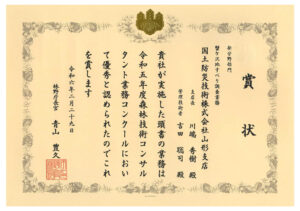 賞状
年分野部門
蟹ケ沢地すべり調査業務
国土防災技術株式会社山形支店
支店長 川端 秀樹 殿
管理技術者 吉田 聡司 殿
貴社が実施した頭書の業務は
令和五年度森林技術コンサル
タント業務コンクールにおい
て優秀と認められたのでこれ
を賞します
令和六年二月二十九日
林野庁長官 青山 豊久